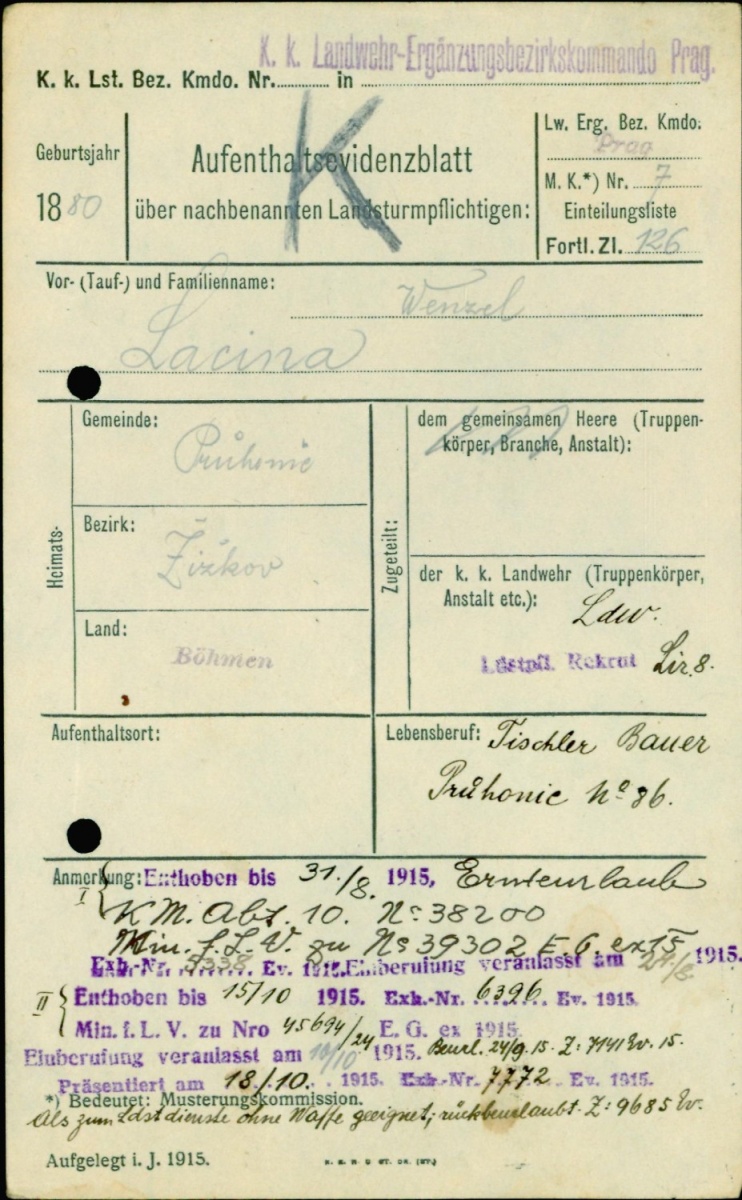 K. k. Landwehr-Ergänzungsbezirkskommando Prag.
K. k. Lst. Bez. Kmdo. Nr. in
K
Geburtsjahr
1880
Aufenthaltsevidenzblatt
über nachbenannten Landsturmpflichtigen:
Lw. Erg. Bez. Kmdo.
Prag
M. K.*) Nr. 7
Einteilungsliste
Fortl. Zl. 126
Vor- (Tauf-) und Familienname:
Wenzel
Lacina
Heimats-
Gemeinde:
Průhonic
Bezirk:
Žižkov
Land:
Böhmen
Zugeteilt:
dem gemeinsamen Heere (Truppen-
körper, Branche, Anstalt):
der k. k. Landwehr (Truppenkörper,
Anstalt etc.):
Ldw.
Ldstpfl. Rekrut Lir. 8.
Aufenthaltsort:
Lebensberuf: Tischler Bauer
Průhonic No 86.
Anmerkung: Enthoben bis 31./8. 1915, Ernteurlaub
I
KM. Abt. 10. No 38200
Min. f. L. V. zu No 39302 E. G. ex 15
Exh.-Nr. 5338 Ev. 1915. Einberufung veranlasst am 1915.
II Enthoben bis 15/10 1915. Exh.-Nr. 6396 Ev. 1915.
Min. f. L. V. zu Nro 45694/24 E. G. ex 1915
Einberufung veranlasst am 10/10 1915. Beurl. 24/9. 15. Z: 7141 Ev. 15.
Präsentiert am 18./10. 1915. Exh.-Nr. 7772 Ev. 1915.
*) Bedeutet: Musterungskommission.
Als zum Ldstdienste ohne Waffe geeignet; rückbeurlaubt. Z: 9685 Ev.
Aufgelegt i. J. 1915.